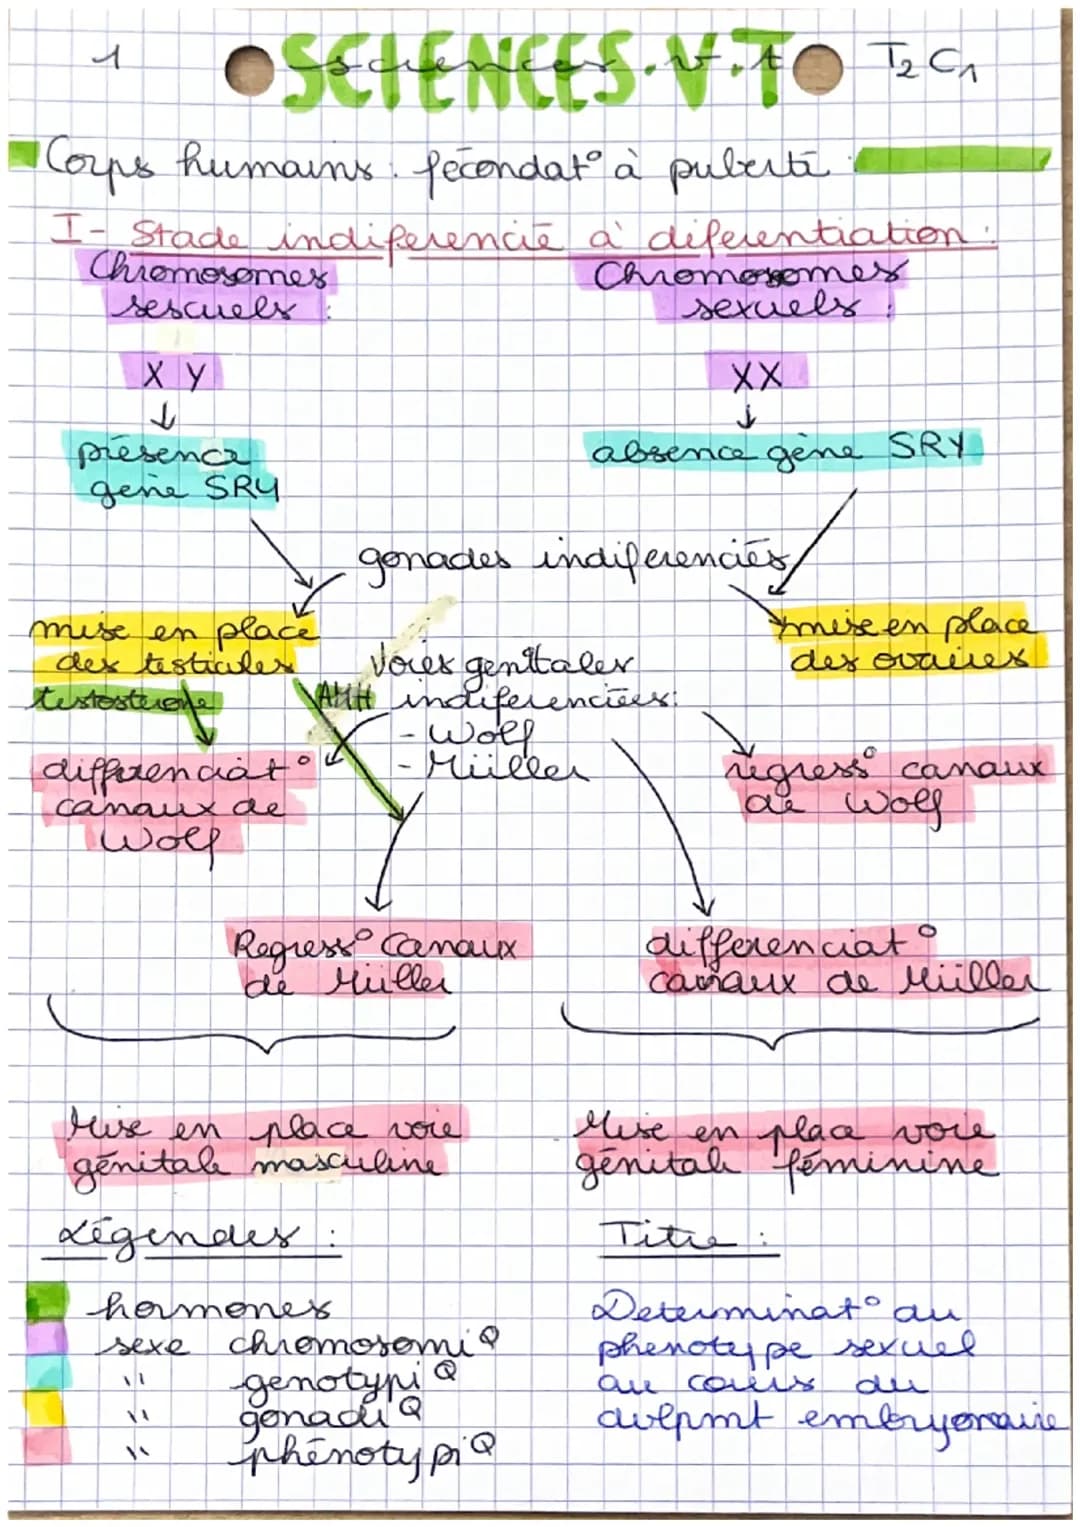 1
SCIENCES.V.T
sciences.v.t
T2 C1
Corps humains : fécondat° à puberté :
I- Stade indiferencié à diferentiation :
Chromosomes
sexuels :
X Y
présence
gène SRY
Chromosomes
sexuels :
XX
absence gène SRY
gonades indiferenciés
mise en place
des testicules
testosterone
AMH
Voies genitales
indiferenciées:
- Wolf
- Müller
mise en place
des ovaires
differenciat°
canaux de
Wolf
regress° canaux
de Wolf
Regress° canaux
de Müller
differenciat°
canaux de Müller
Mise en place voie
génitale masculine
Mise en place voie
génitale féminine
Légendes :
hormones
sexe chromosomiQ
" genotypiQ
" gonadiQ
" phénotypiQ
Titre :
Determinat° du
phenotype sexuel
au cours du
dvlpmt embryonaire